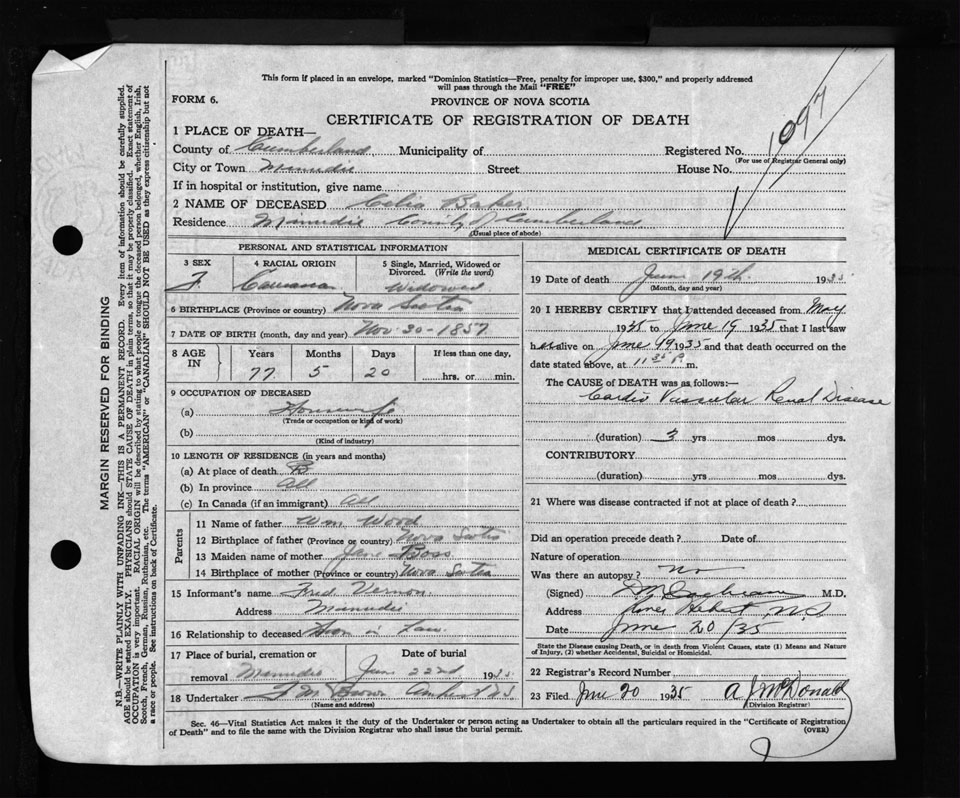 This form if placed in an envelope, marked "Dominion Statistics—Free, penalty for improper use, $300," and properly addressed
will pass through the Mail "FREE"
FORM 6.
PROVINCE OF NOVA SCOTIA
CERTIFICATE OF REGISTRATION OF DEATH
1097
1 PLACE OF DEATH—
County of Cumberland Municipality of Registered No.
(For use of Registrar General only)
City or Town Minudie Street House No.
If in hospital or institution, give name
2 NAME OF DECEASED Celia Baker
Residence Minudie County of Cumberland
(Usual place of abode)
PERSONAL AND STATISTICAL INFORMATION
3 SEX 4 RACIAL ORIGIN 5 Single, Married, Widowed or
Divorced. (Write the word)
F. Widowed
6 BIRTHPLACE (Province or country) Nova Scotia
7 DATE OF BIRTH (month, day and year) Nov-30-1857
8 AGE IN Years Months Days If less than one day,
77 5 20 hrs. or min.
9 OCCUPATION OF DECEASED
(a) Housewife
(Trade or occupation or kind of work)
(b)
(Kind of industry)
10 LENGTH OF RESIDENCE (in years and months)
(a) At place of death
(b) In province All
(c) In Canada (if an immigrant) All
Parents
11 Name of father Wm Wood
12 Birthplace of father (Province or country) Nova Scotia
13 Maiden name of mother Jane
14 Birthplace of mother (Province or country) Nova Scotia
15 Informant's name Fred Vernon
Address Minudie
16 Relationship to deceased Son in Law
17 Place of burial, cremation or Date of burial
removal Minudie Jun 22nd 1935
18 Undertaker Brown Amherst NS
(Name and address)
MEDICAL CERTIFICATE OF DEATH
19 Date of death June 19th 1935
(Month, day and year)
20 I HEREBY CERTIFY that I attended deceased from May
1935 to June 19 1935 that I last saw
her alive on June 19 1935 and that death occurred on the
date stated above, at 11 35 P m.
The CAUSE OF DEATH was as follows:—
Cardio Vascular Renal Disease
(duration) 3 yrs mos dys.
CONTRIBUTORY
(duration) yrs mos dys.
21 Where was disease contracted if not at place of death?
Did an operation precede death? Date of
Nature of operation
Was there an autopsy? No
(Signed) M.D.
Address River Hebert, N.S
Date June 20/35
State the Disease causing Death, or in death from Violent Causes, state (1) Means and Nature
of Injury, (2) whether Accidental, Suicidal or Homicidal.
22 Registrar's Record Number
23 Filed June 20 1935 A J McDonald
(Division Registrar)
Sec. 46—Vital Statistics Act makes it the duty of the Undertaker or person acting as Undertaker to obtain all the particulars required in the "Certificate of Registration
of Death" and to file the same with the Division Registrar who shall issue the burial permit.
(OVER)
MARGIN RESERVED FOR BINDING
N.B.—WRITE PLAINLY WITH UNFADING INK—THIS IS A PERMANENT RECORD. Every item of information should be carefully supplied.
AGE should be stated EXACTLY. PHYSICIANS should STATE CAUSE OF DEATH in plain terms, so that it may be properly classified. Exact statement of
OCCUPATION is very important. RACIAL ORIGIN will be described by stating to what people or tongue the deceased person belonged, whether English, Irish,
Scotch, French, German, Russian, Ruthenian, etc. The terms "AMERICAN" or "CANADIAN" SHOULD NOT BE USED as they express citizenship but not
a race or people. See instructions on back of Certificate.